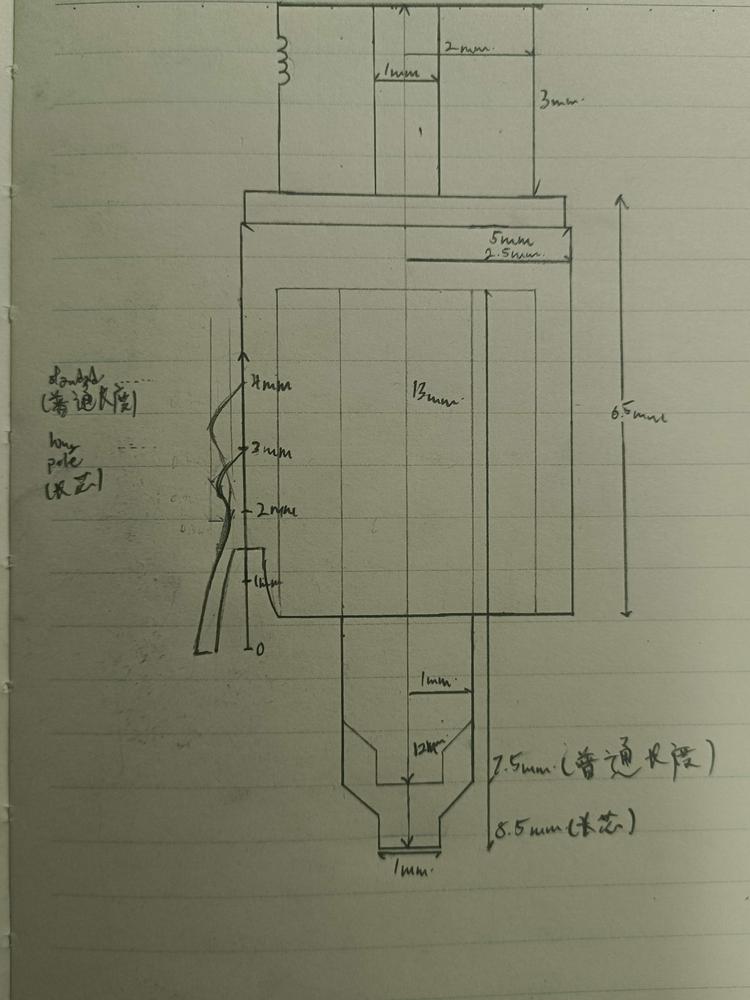 2mm.
1mm
3mm.
5mm
2.5mm.
4mm
(普通长度)
13mm.
6.5mm
long
pole
(长芯)
3mm
2mm
1mm
0
1mm.
12mm
7.5mm.(普通长度)
8.5mm(长芯)
1mm.